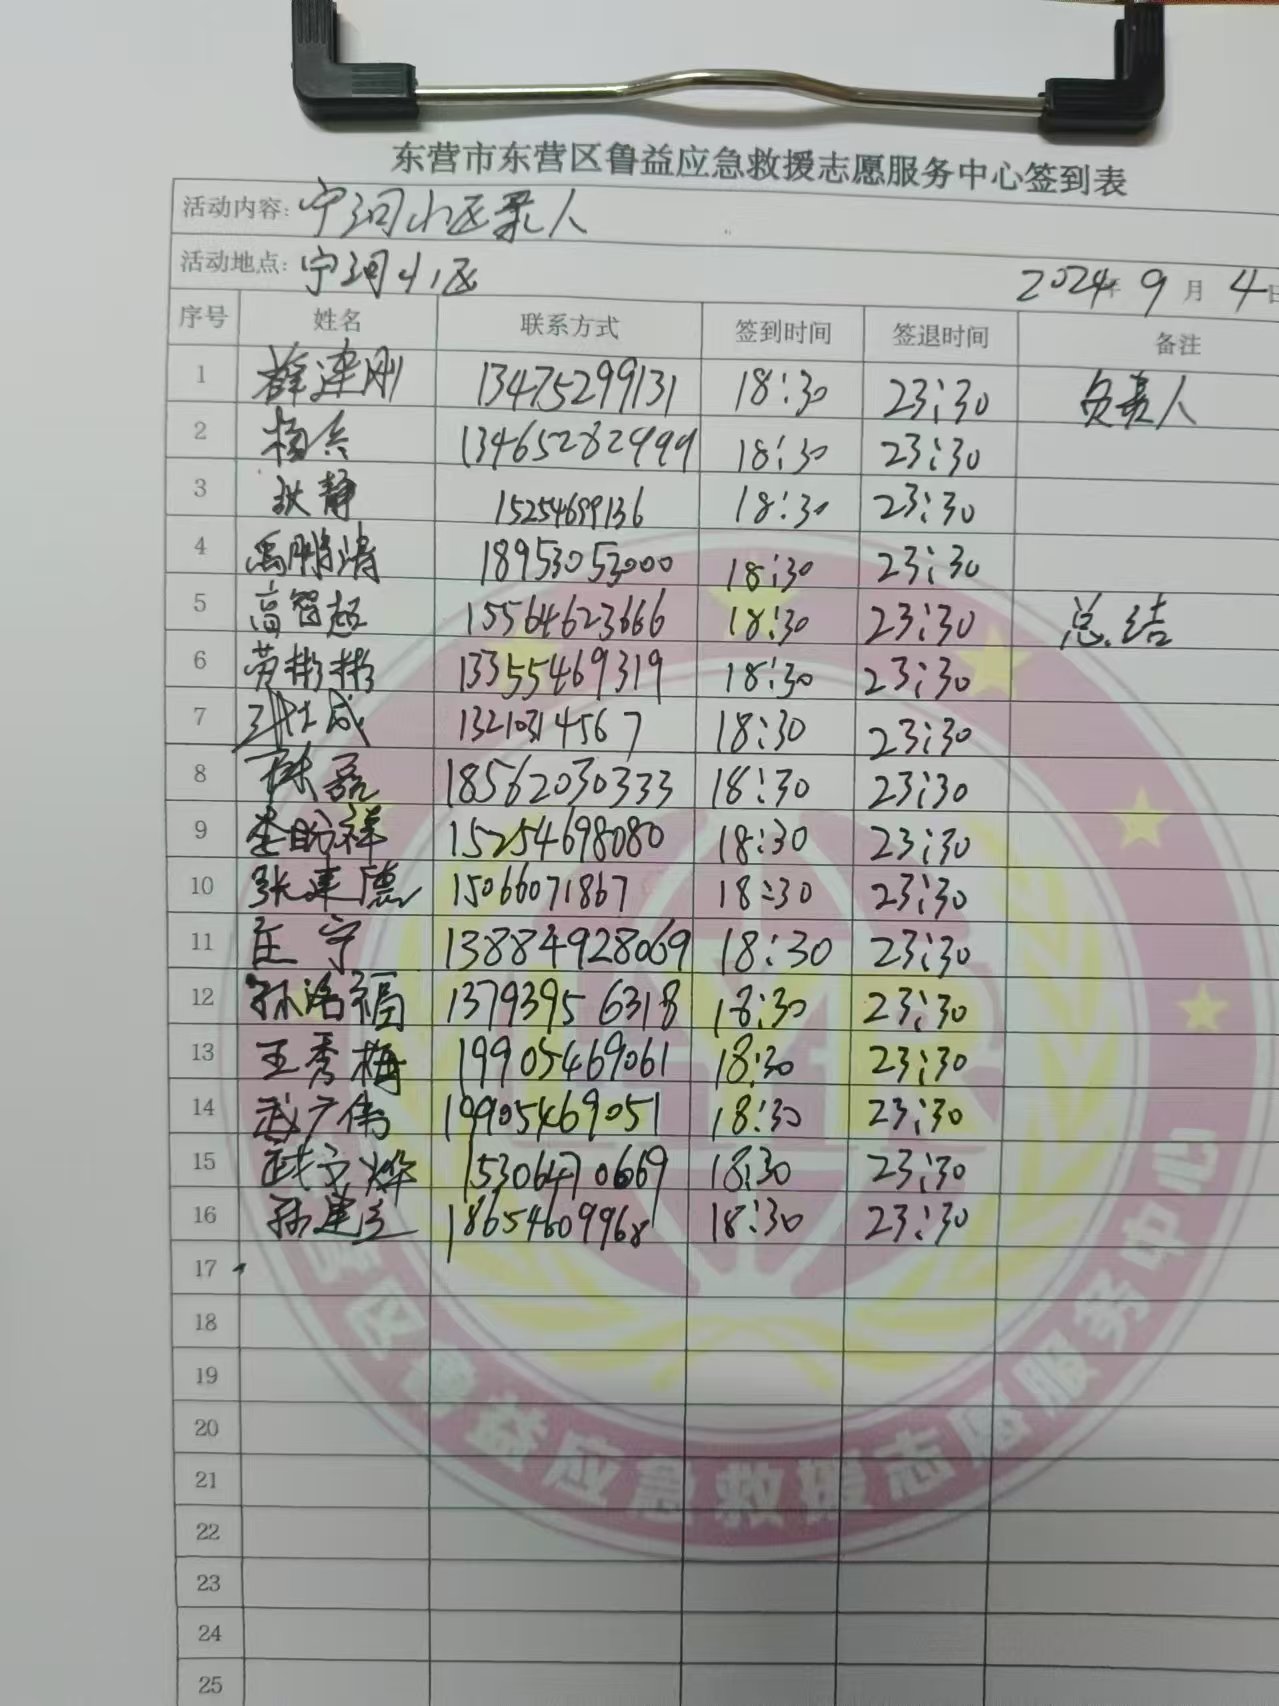 东营市东营区鲁益应急救援志愿服务中心签到表
活动内容: 宁河小区寻人
活动地点: 宁河小区 2024年 9 月 4日
序号 姓名 联系方式 签到时间 签退时间 备注
1 薛建刚 13475299131 18:30 23:30 负责人
2 杨兵 13465282999 18:30 23:30
3 狄静 15254699136 18:30 23:30
4 18953053000 18:30 23:30
5 高智超 15564623666 18:30 23:30 总结
6 苟彬彬 13355469319 18:30 23:30
7 13210314567 18:30 23:30
8 林磊 18562030333 18:30 23:30
9 15254698080 18:30 23:30
10 张建德 15066071867 18:30 23:30
11 匡宁 13884928069 18:30 23:30
12 孙洛福 13793956318 18:30 23:30
13 王秀梅 19905469061 18:30 23:30
14 武广伟 19905469051 18:30 23:30
15 15306470669 18:30 23:30
16 孙建 18654609968 18:30 23:30
17
18
19
20
21
22
23
24
25
营区鲁益应急救援志愿服务中心